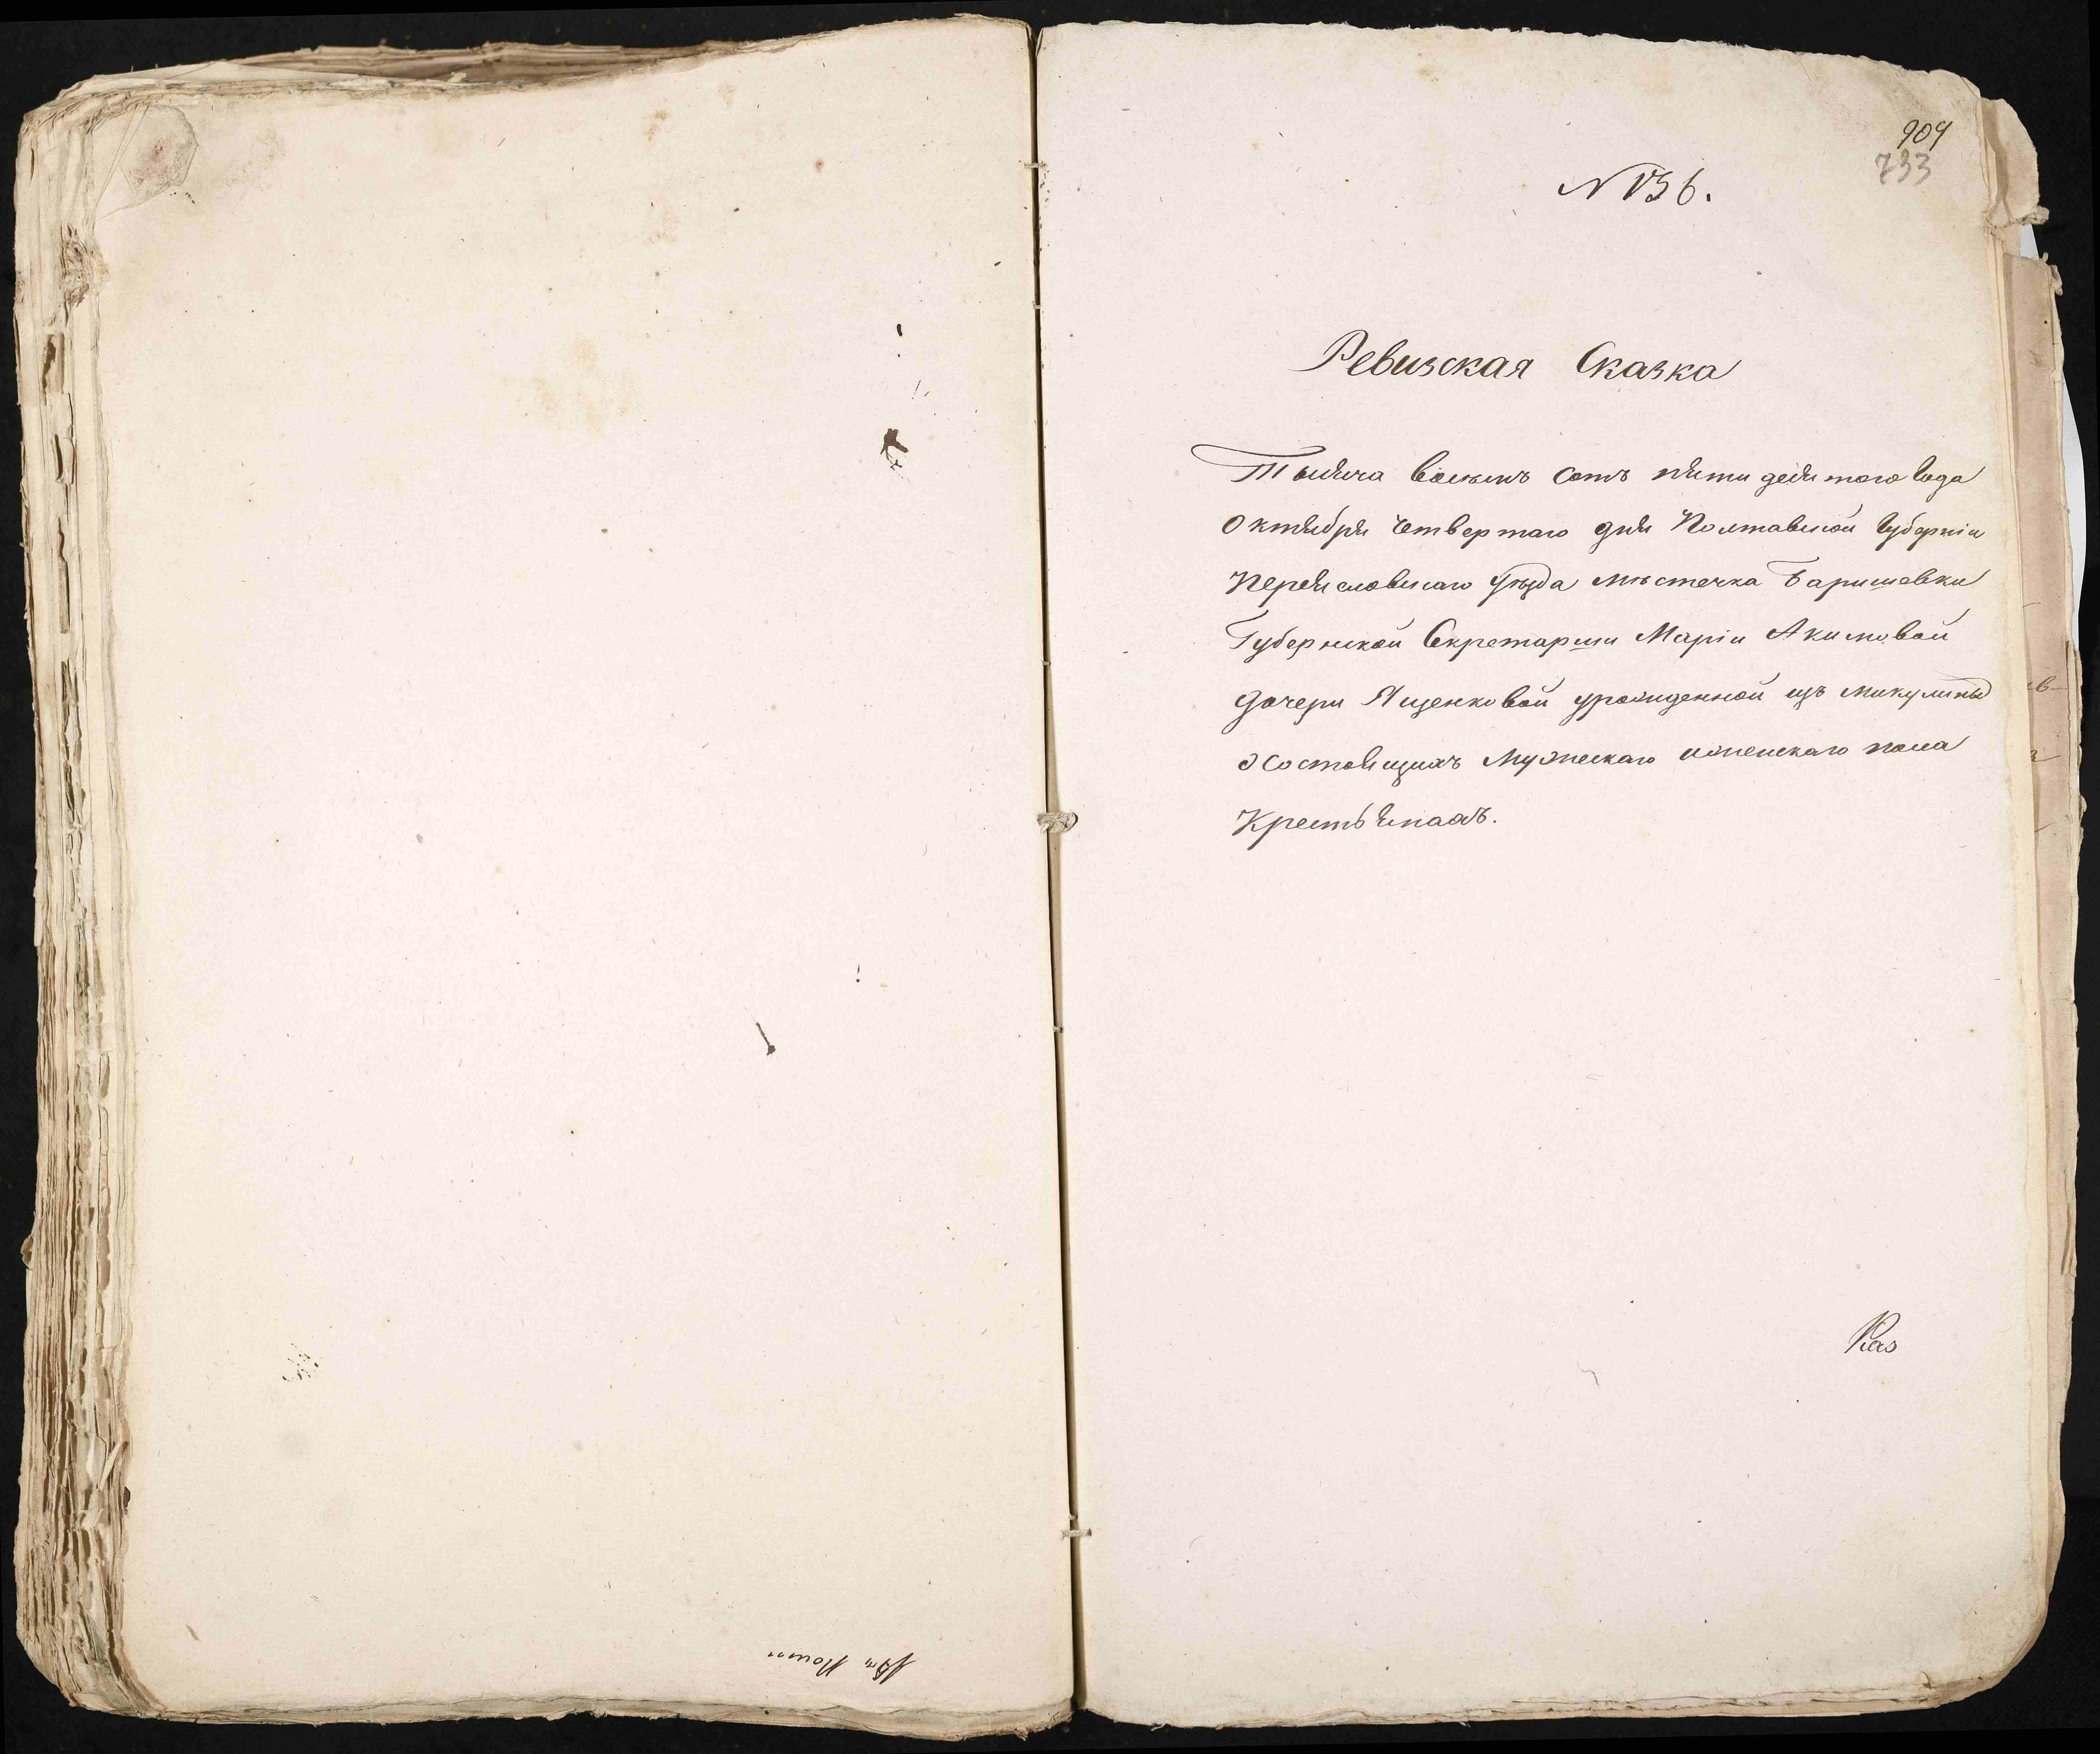 909
733
N 136.
Ревизская Сказка
Тысяча восемь сотъ пяти десятого года
Октября четвертаго дня Полтавской Губерніи
Переясловскаго Уѣзда мѣстечка Баришевки
Губернской Секретарши Маріи Акимовой
дочери Ященковой урожденной изъ Микулины
о состоящихъ мужескаго иженскаго пола
Крестьянахъ.